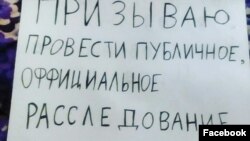 ПРИЗЫВАЮ
ПРОВЕСТИ ПУБЛИЧНОЕ,
ОФФИЦИАЛЬНОЕ
РАССЛЕДОВАНИЕ
Facebook